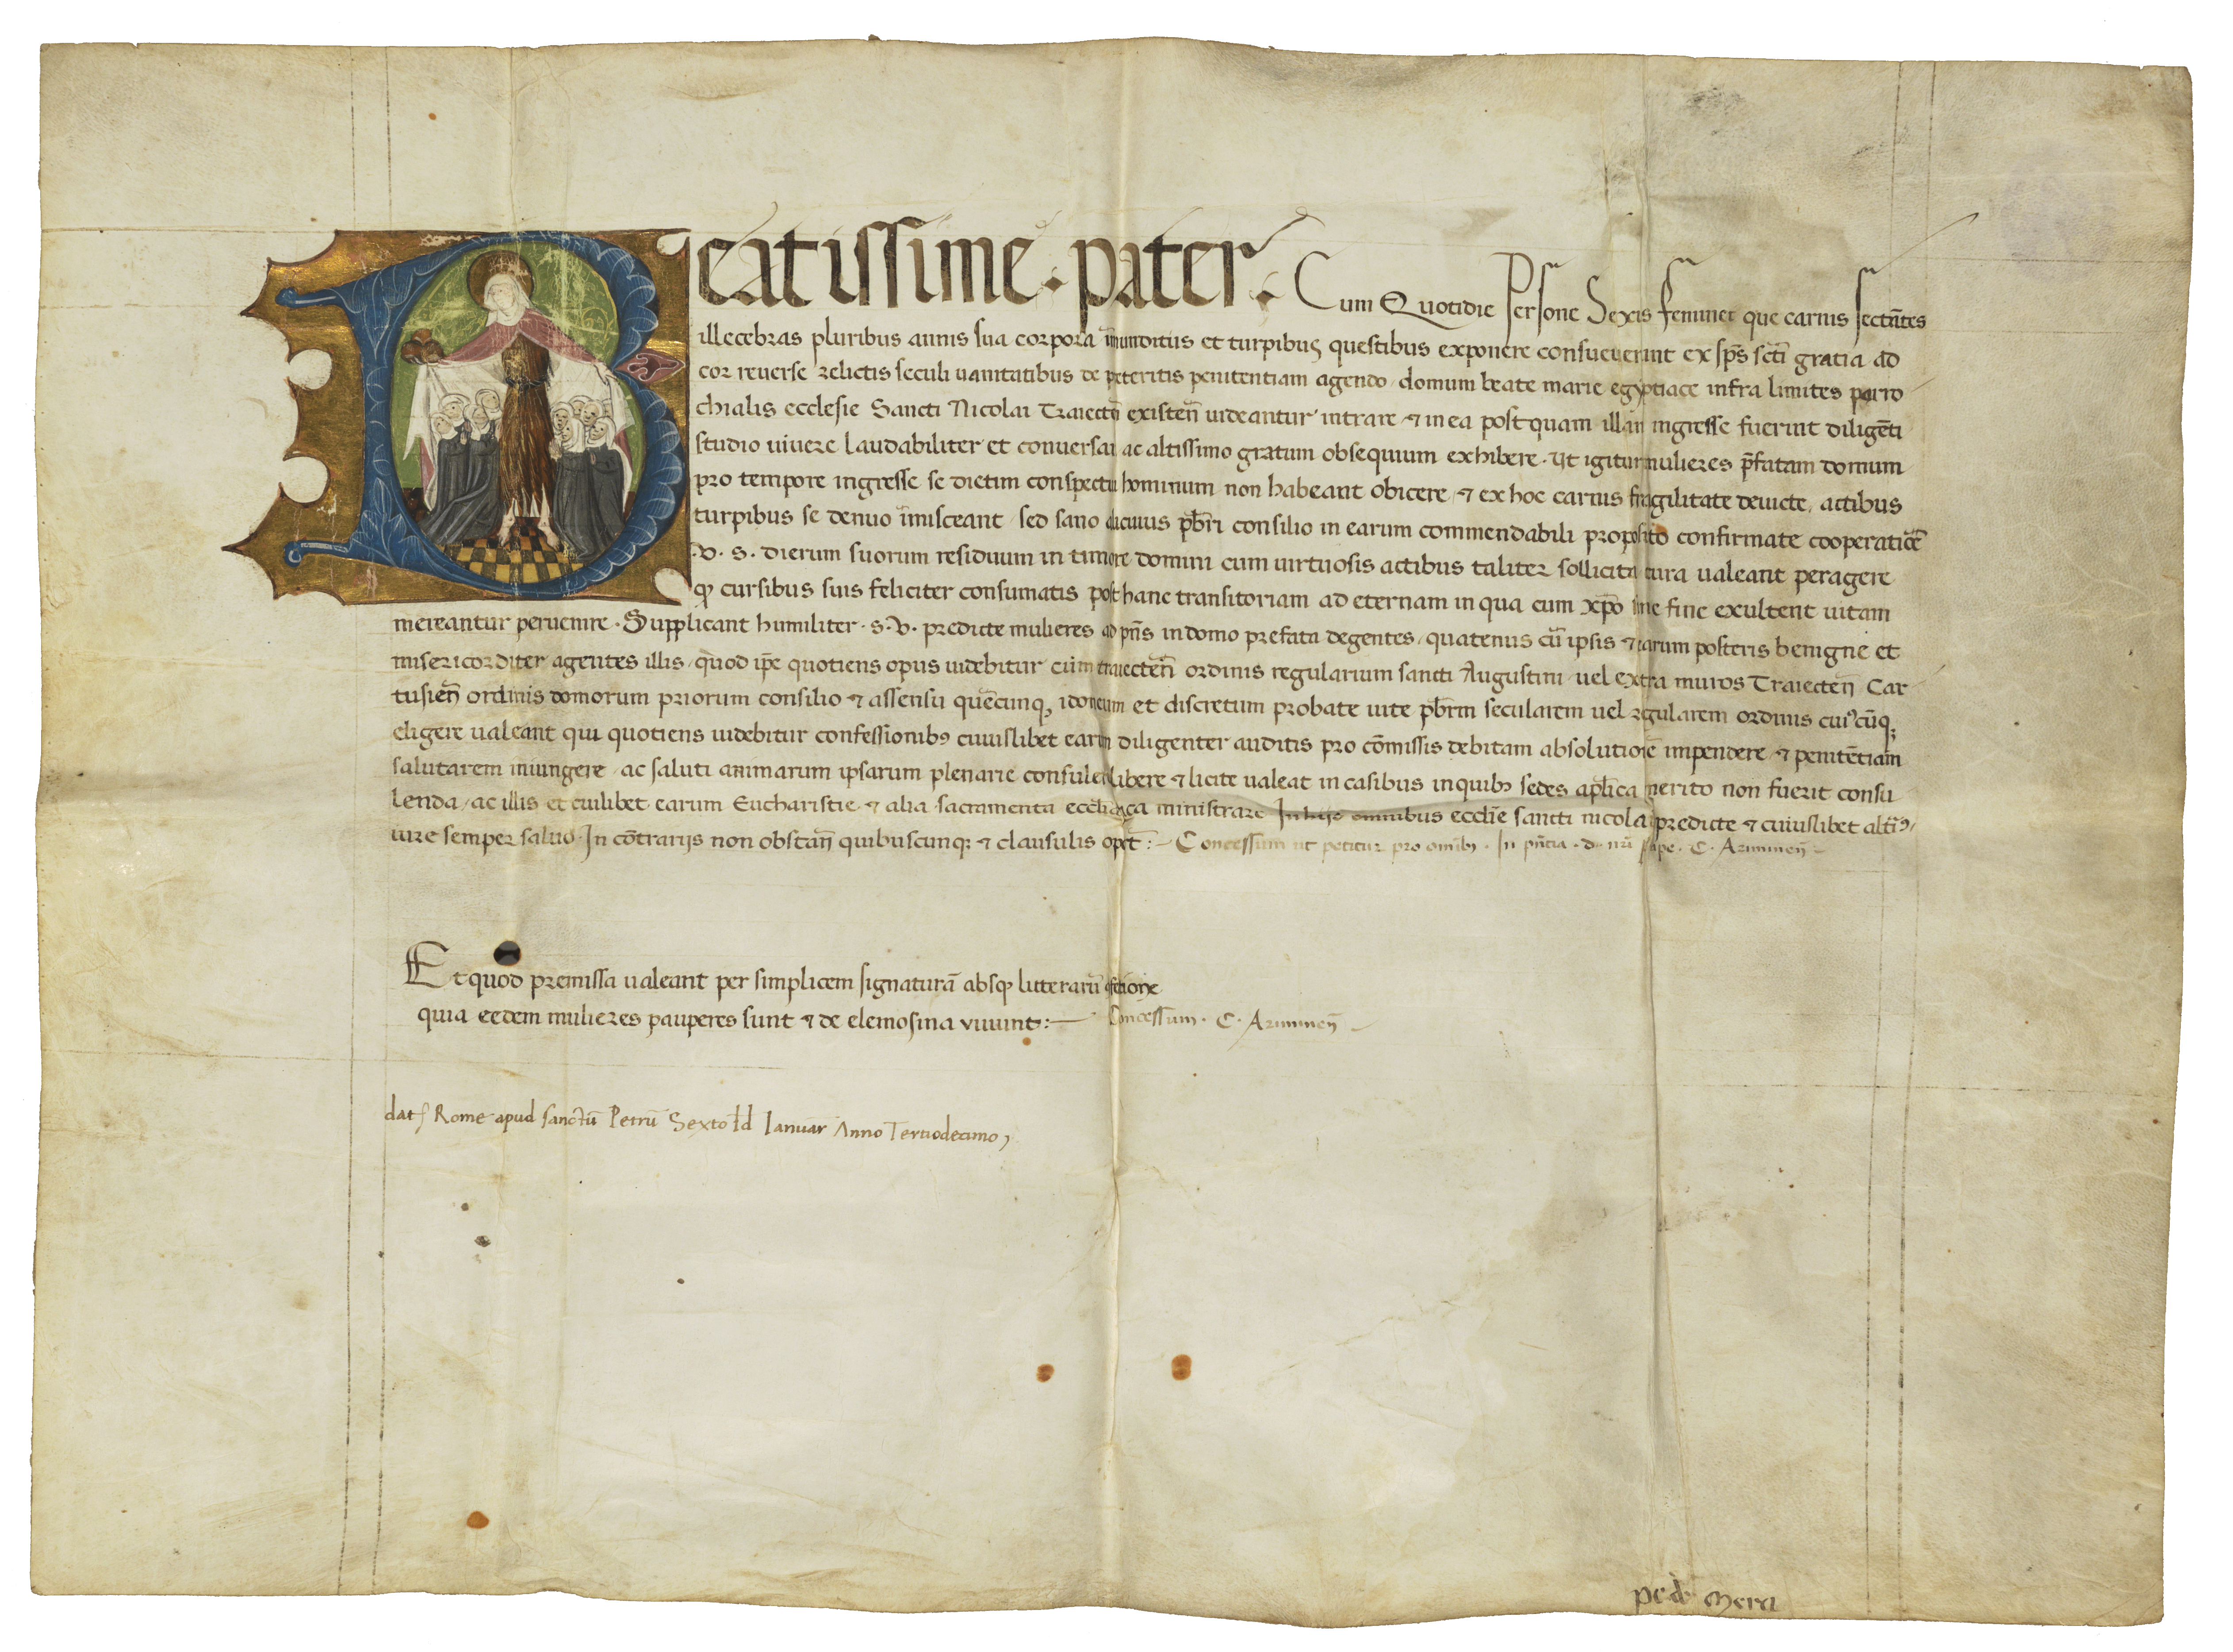 Beatissime · pater · Cum Quotidie Persone Sexus feminei que carnis sectãtes
illecebras pluribus annis sua corpora ĩmunditiis et turpibus questibus exponere consueuerint ex sp̃s sc̃ti gratia ad
cor reuerse relictis seculi uanitatibus de p̃teritis penitentiam agendo domum beate marie egyptiace infra limites parro
chialis ecclesie Sancti Nicolai Traiectẽ existeñ uideantur intrare ⁊ in ea postquam illam ingresse fuerint diligẽti
studio uiuere laudabiliter et conuersari ac altissimo gratum obsequium exhibere · Ut igitur mulieres p̃fatam domum
pro tempore ingresse se dietim conspectui hominum non habeant obicere ⁊ ex hoc carnis fragilitate deuicte, actibus
turpibus se denuo ĩmisceant / sed sano alicuius pb̃ri consilio in earum commendabili proposito confirmate cooperatiõe
· v · s · dierum suorum residuum in timore domini cum uirtuosis actibus taliter sollicita cura ualeant peragere
qꝫ cursibus suis feliciter consumatis post hanc transitoriam ad eternam in qua cum xp̃o sine fine exultent uitam
mereantur peruenire · Supplicant humiliter · s · v · predicte mulieres ad pñs in domo prefata degentes / quatenus cũ ipsis ⁊ earum posteris benigne et
misericorditer agentes illis / quod ip̃e quotiens opus uidebitur cum traiecteñ ordinis regularium sancti Augustini uel extra muros Traiecteñ Car
tusieñ ordinis domorum priorum consilio ⁊ assensu quẽcunqꝫ idoneum et discretum probate uite pb̃rm secularem uel regularem ordinis cuiꝰcũqꝫ
eligere ualeant qui quotiens uidebitur confessionibꝰ cuiuslibet earum diligenter auditis pro cõmissis debitam absolutionẽ impendere ⁊ penitẽtiam
salutarem iniungere ac saluti animarum ipsarum plenarie consulere libere ⁊ licite ualeat in casibus in quibꝰ sedes ap̃lica merito non fuerit consu
lenda / ac illis et cuilibet earum Eucharistie ⁊ alia sacramenta ecc̃liastica ministrare In hijs omnibus eccl̃ie sancti nicolai predicte ⁊ cuiuslibet alteriꝰ
iure semper saluo · In cõtrarijs non obstañ quibuscunqꝫ ⁊ clausulis oportũ :– Concessum ut petitur pro omnibꝰ · In pñtia · d · nr̃i pape · C · Arimineñ –
Et quod premissa ualeant per simplicem signaturã absqꝫ litterarũ cõfectione
quia eedem mulieres pauperes sunt ⁊ de elemosina viuunt :— Concessum · C · Arimineñ –
dat̃ Rome apud sanctũ Petrũ Sexto Id Ianuar̃ Anno Tertiodecimo